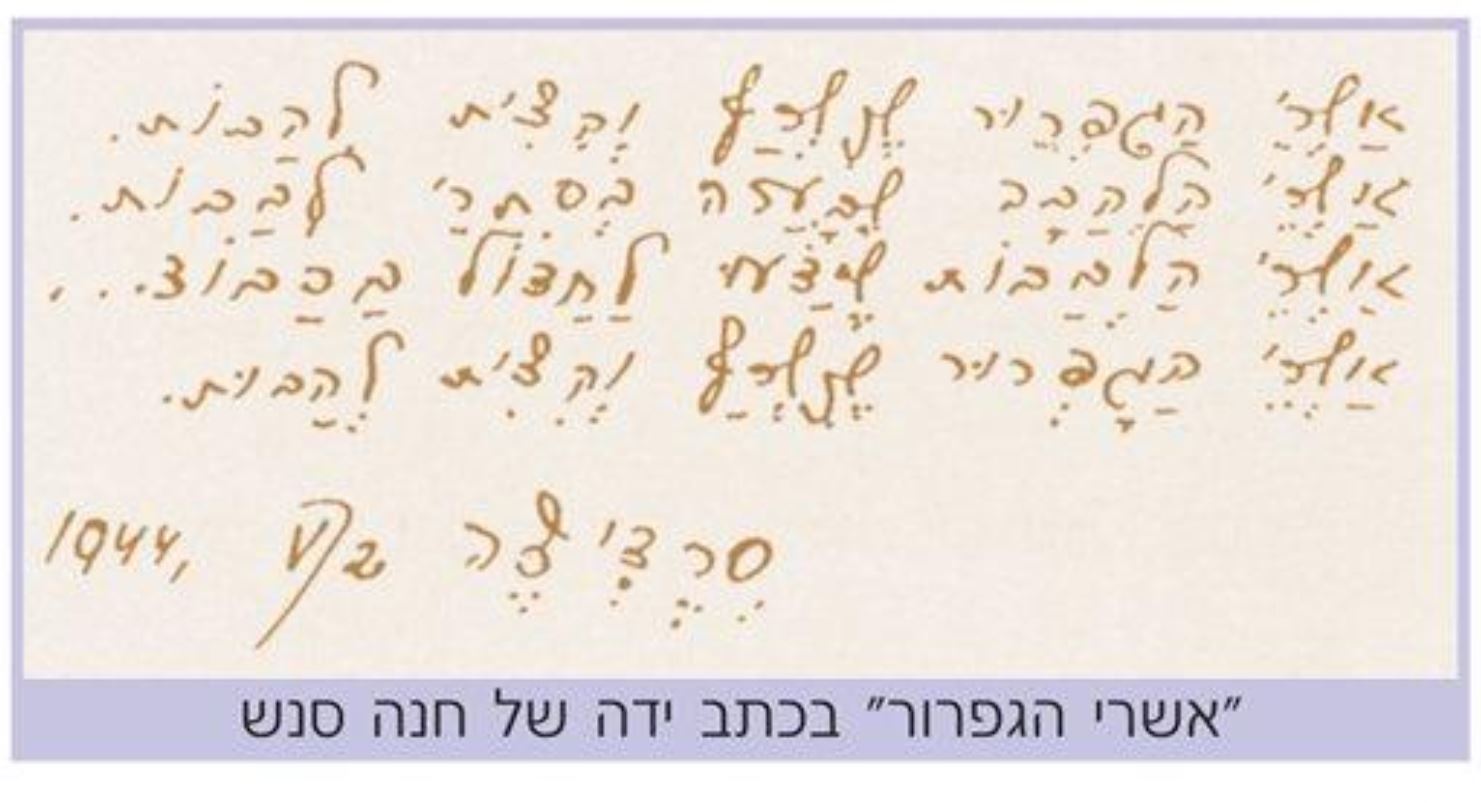 אשרי הגפרור שנשרף והצית להבות.
אשרי הלהבה שבערה בסתרי לבבות.
אשרי הלבבות שידעו לחדול בכבוד...
אשרי הגפרור שנשרף והצית להבות.
סרדיצה 2/V 1944,
"אשרי הגפרור" בכתב ידה של חנה סנש